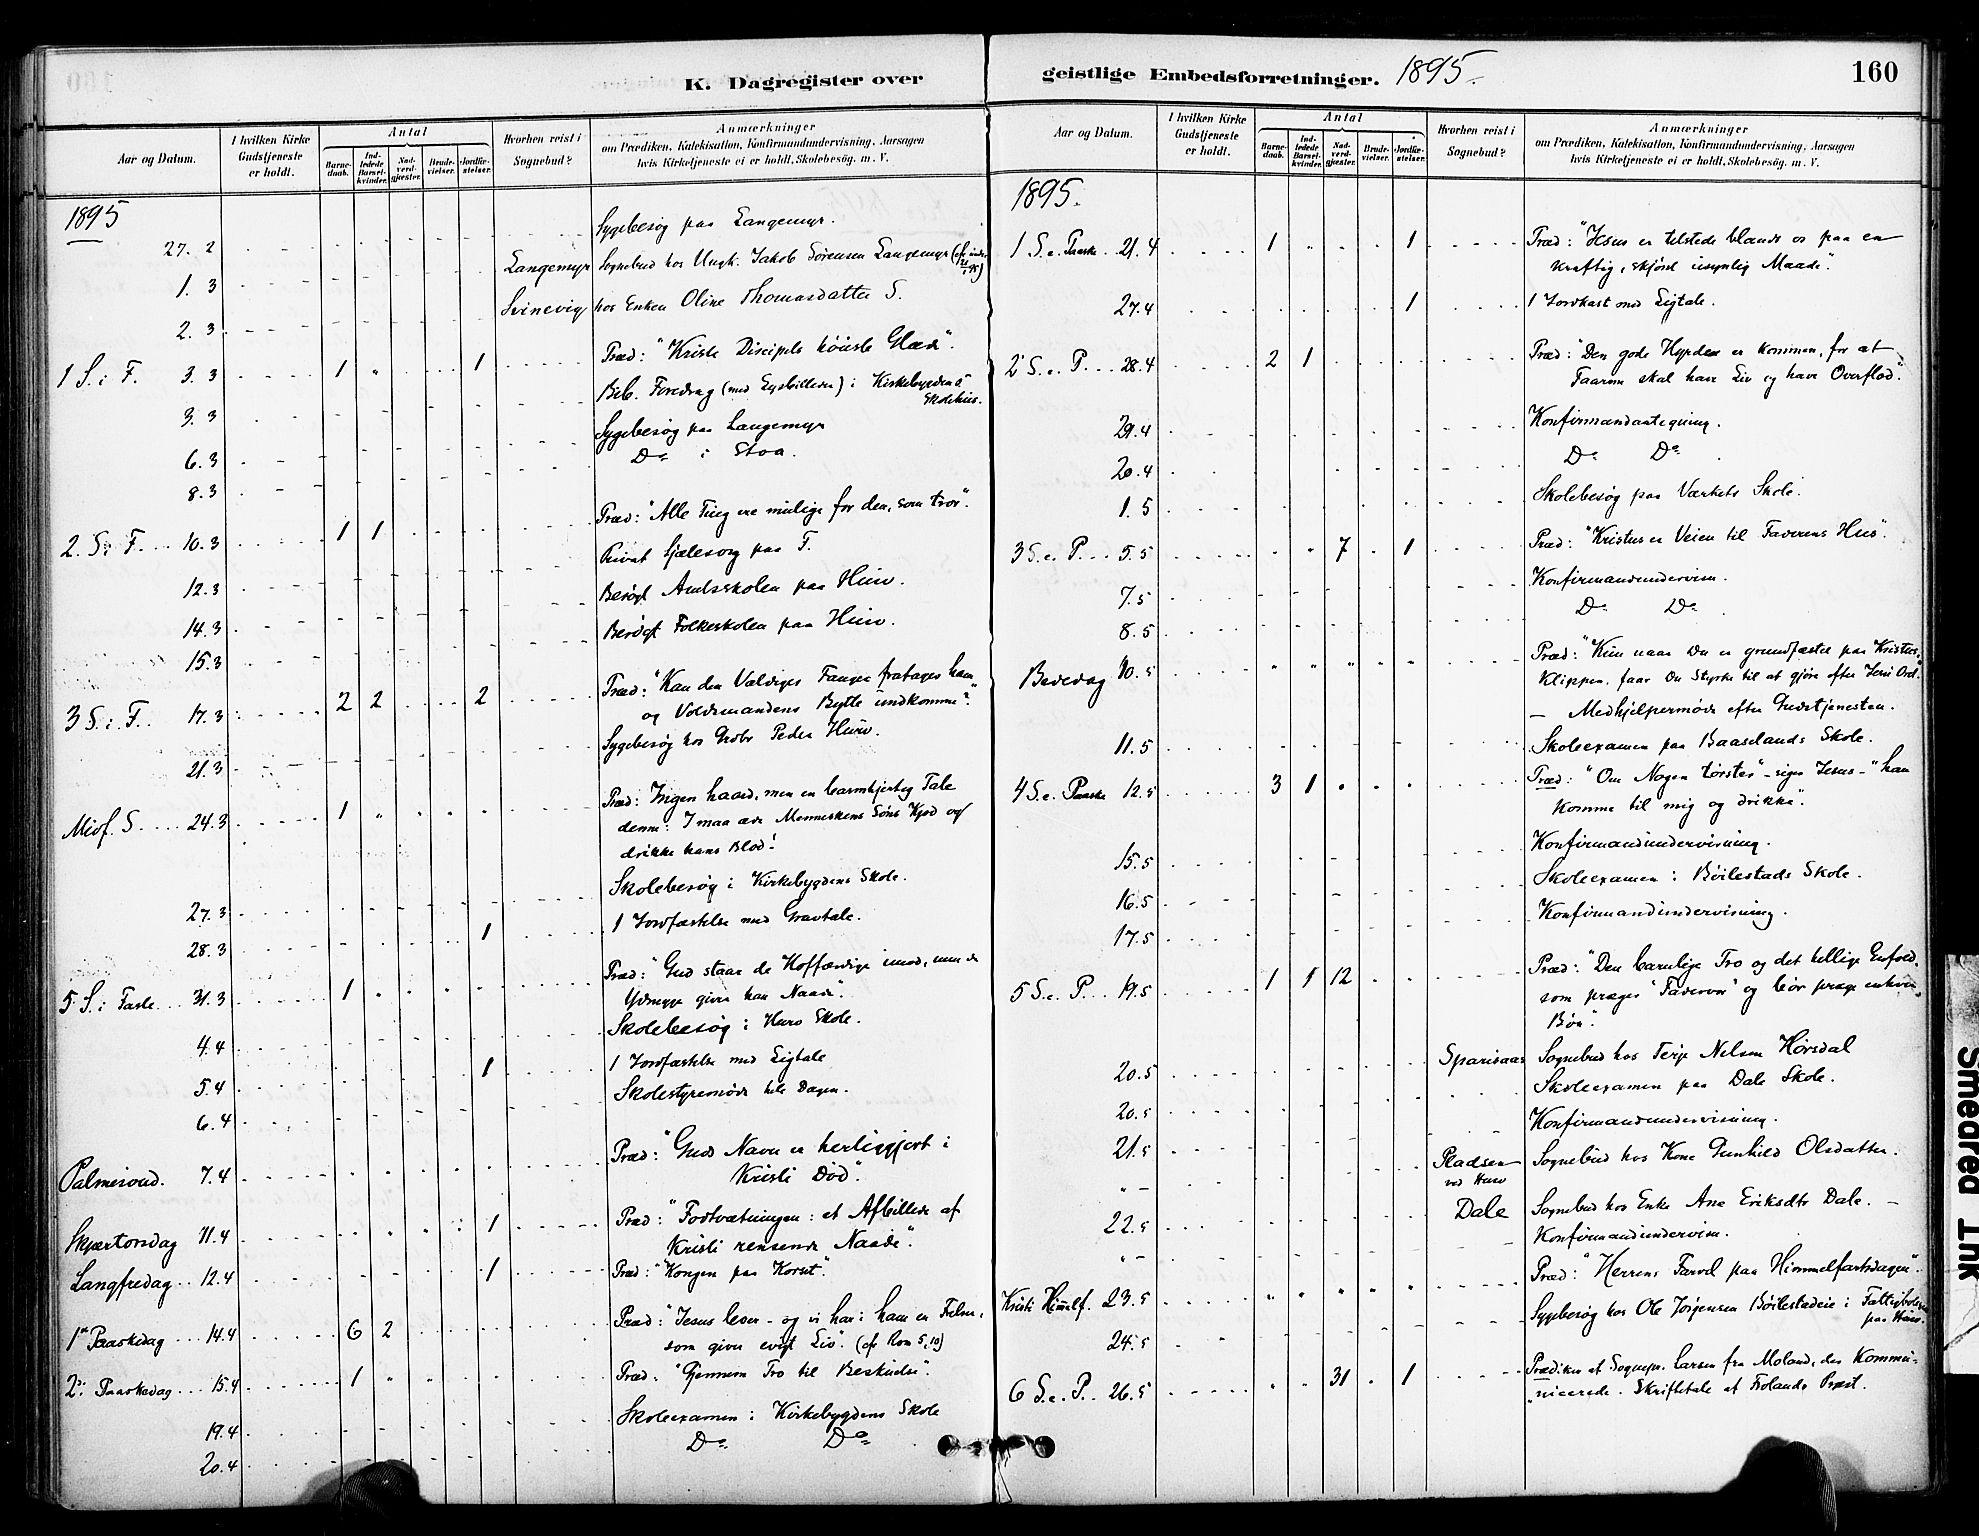 K. Dagregister over
geistlige Embedsforretninger. 1895.
160
Aar og Datum.
I hvilken Kirke Gudstjeneste er holdt.
Antal
Barnedaab.
Indledede Barselkvinder.
Nadverdgjæster.
Brudevielser.
Jordfæstelser.
Hvorhen reist i Sognebud?
Anmærkninger
om Prædiken, Katekisation, Konfirmandundervisning, Aarsagen
hvis Kirketjeneste ei er holdt, Skolebesøg. m. V.
1895
27. 2 Sygebesøg paa Langemyr.
1. 3 Langemyr Sognebud hos Ungk. Jakob Sørensen Langemyr
2. 3 Svinevig hos Enken Oline Thomasdatter S.
1 S. i F. 3. 3 1 " 1 Præd: "Kristi Discipels høieste Glæde".
3. 3 Bib. Foredrag (med Lysbilleder) i Kirkebygdens Skolehus.
6. 3 Sygebesøg paa Langemyr
8. 3 Do i Stoa.
2. S. i F. 10. 3 1 1 Præd: "Alle Ting ere mulige for den, som tror".
12. 3 Privat Sjælesorg paa F.
14. 3 Besøgt Amtsskolen paa Hurv.
15. 3 Besøgt Folkeskolen paa Hurv.
3 S. i F. 17. 3 2 2 2 Præd: "Kan den Vældiges Fanger fratages ham
og Voldsmandens Bytte undkomme?"
21. 3 Sygebesøg hos Grdbr Peder Hurv.
Midf. S. 24. 3 1 " Præd: Ingen haard, men en barmhjertig Tale
denne: I maa æde Menneskens Søns Kjød og
drikke hans Blod!
27. 3 Skolebesøg i Kirkebygdens Skole.
28. 3 1 1 Jordfæstelse med Gravtale.
5 S. i Faste 31. 3 1 Præd: "Gud staar de Hoffærdige imod, men de
Ydmyge giver han Naade".
4. 4 Skolebesøg i Hurv Skole.
5. 4 1 1 Jordfæstelse med Ligtale
6. 4 Skolestyremøde hele Dagen.
Palmesond. 7. 4 Præd: "Guds Navn er herliggjort i
Kristi Død".
Skjærtorsdag 11. 4 1 Præd: "Fodtvætningen: et Afbillede af
Kristi rensende Naade".
Langfredag 12. 4 1 Præd: "Kongen paa Korset".
1ste Paaskedag 14. 4 6 2 Præd: "Jesus lever - og vi har i ham en Frelser,
som giver evigt Liv". (cfr Rom 5, 10)
2. Paaskedag 15. 4 1 Præd: "Gjennem Tro til Beskuelse".
19. 4 Skoleexamen i Kirkebygdens Skole
20. 4 Do Do
Aar og Datum.
I hvilken Kirke Gudstjeneste er holdt.
Antal
Barnedaab.
Indledede Barselkvinder.
Nadverdgjæster.
Brudevielser.
Jordfæstelser.
Hvorhen reist i Sognebud?
Anmærkninger
om Prædiken, Katekisation, Konfirmandundervisning, Aarsagen
hvis Kirketjeneste ei er holdt, Skolebesøg. m. V.
1895.
1 S. e. Paaske 21. 4 1 " " 1 Præd: "Jesus er tilstede blandt os paa en
kraftig, skjønt usynlig Maade".
27. 4 1 1 Jordkast med Ligtale.
2 S. e. P. 28. 4 2 1 Præd: "Den gode Hyrde er kommen, for at
Faarene skal have Liv og have Overflod".
29. 4 Konfirmandantegning.
20. 4 Do Do
1. 5 Skolebesøg paa Værkets Skole.
3 S. e. P. 5. 5 " 7 1 Præd: "Kristus er Veien til Faderens Hus".
7. 5 Konfirmandundervisn.
8. 5 Do Do
Bededag 10. 5 " " " " Præd: "Kun naar Du er grundfæstet paa Kristus,
Klippen, faar Du Styrke til at gjøre efter Jesu Ord."
— Medhjelpermøde efter Gudstjenesten.
11. 5 Skoleexamen paa Baaselands Skole.
4 S. e. Paaske 12. 5 3 1 Præd: "Om Nogen tørster" - siger Jesus - "han
komme til mig og drikke".
15. 5 Konfirmandundervisning.
16. 5 Skoleexamen i Bøilestads Skole.
17. 5 Konfirmandundervisning.
5 S. e. P. 19. 5 1 1 12 Præd: "Den barnlige Tro og det hellige Enfold,
som præger "Fadervor" og bør præge enhver
Bøn".
20. 5 Sparsaas Sognebud hos Terje Nelsen Hørsdal
20. 5 Skoleexamen paa Dale Skole.
21. 5 Konfirmandundervisning.
" — Pladsen ved Hurv Sognebud hos Kone Gunhild Olsdatter.
22. 5 Dale Sognebud hos Enke Ane Eriksdtr Dale. —
" — Konfirmandundervisn.
Kristi Himmelf. 23. 5 " " " " " Præd: "Herrens Farvel paa Himmelfartsdagen".
24. 5 Sygebesøg hos Ole Jørgensen Bøilestadeie i Fattigbolig paa Hurv.
6 S. e. P. 26. 5 " " 31 1 Prædiken af Sognepr. Larsen fra Moland, der kommu-
nicerede. Skriftetale af Frolands Præst.
Smeared Ink